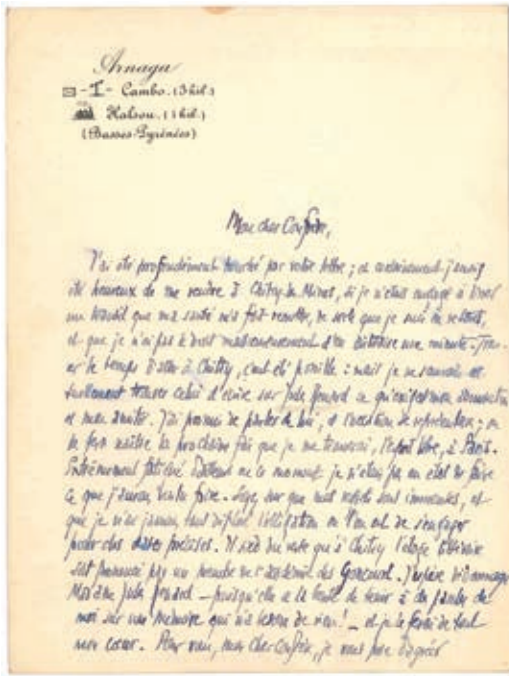 Arnaga
Cambo. (3 kil.)
Halsou. (1 kil.)
(Basses-Pyrénées)
Mon cher Confrère,
J'ai été profondément touché par votre lettre ; et certainement j'aurais
été heureux de me rendre à Chitry-les-Mines, si je n'étais
un travail que ma santé m'a fait remettre, de sorte que je suis en retard,
et que je n'ai pas le droit maintenant d'en distraire une minute. Trou-
ver le temps d'aller à Chitry, c'eut été possible : mais je ne saurais
trouver celui d'écrire sur Jules Renard ce qu'exigent mon admiration
et mon amitié. J'ai promis de parler de lui, et l'occasion se représentera ; on
la fera naître la prochaine fois que je me trouverai, l'esprit libre, à Paris.
Extrêmement fatigué en ce moment je n'étais pas en état de faire
ce que j'aurais voulu faire. que mes regrets sont immenses, et
que je n'ai jamais tant déploré l'obligation où l'on est de s'engager
pour des dates précises. Il sied du reste qu'à Chitry l'éloge littéraire
soit prononcé par un membre de l'académie des Goncourt. J'espère
Madame Jules Renard – puisqu'elle a la bonté de tenir à du parler de
moi sur une mémoire qui n'a besoin de rien ! – et je le ferai de tout
mon cœur. Pour vous, mon cher Confrère, je vous prie d'agréer